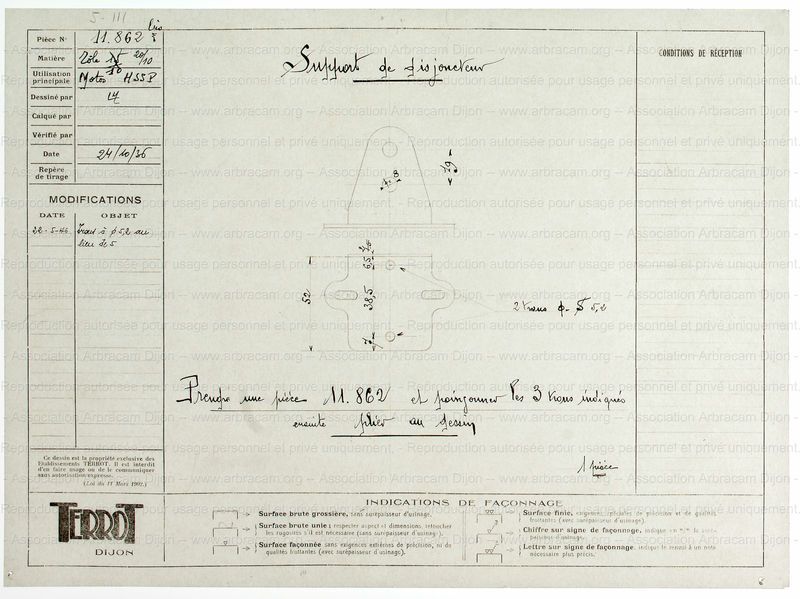 5-111
bis
Pièce N° 11.862
Matière Tôle 20/10
Utilisation
principale Motos HSSP
Dessiné par
Calqué par
Vérifié par
Date 24/10/36
Repère
de tirage
MODIFICATIONS
DATE OBJET
22-5-46 Trous à ø 5,2 au
lieu de 5
Support de disjoncteur
CONDITIONS DE RÉCEPTION
19
8
6,5
52
38,5
2 trous ø 5,2
Prendre une pièce 11.862 et poinçonner les 3 trous indiqués
ensuite plier au dessin
1 pièce
Ce dessin est la propriété exclusive des
Etablissements TERROT. Il est interdit
d'en faire usage ou de le communiquer
sans autorisation expresse.
(Loi du 11 Mars 1902.)
TERROT
DIJON
INDICATIONS DE FAÇONNAGE
Surface brute grossière, sans surépaisseur d'usinage.
Surface brute unie; respecter aspect et dimensions, retoucher
les rugosités s'il est nécessaire (sans surépaisseur d'usinage).
Surface façonnée sans exigences extrêmes de précision, ni de
qualités frottantes (avec surépaisseur d'usinage).
Surface finie, exigences spéciales de précision et de qualités
frottantes (avec surépaisseur d'usinage).
Chiffre sur signe de façonnage, indique en
Lettre sur signe de façonnage, indique le renvoi à un note
nécessaire plus précis.
Reproduction autorisée pour usage personnel et privé uniquement. Association Arbracam Dijon – www.arbracam.org